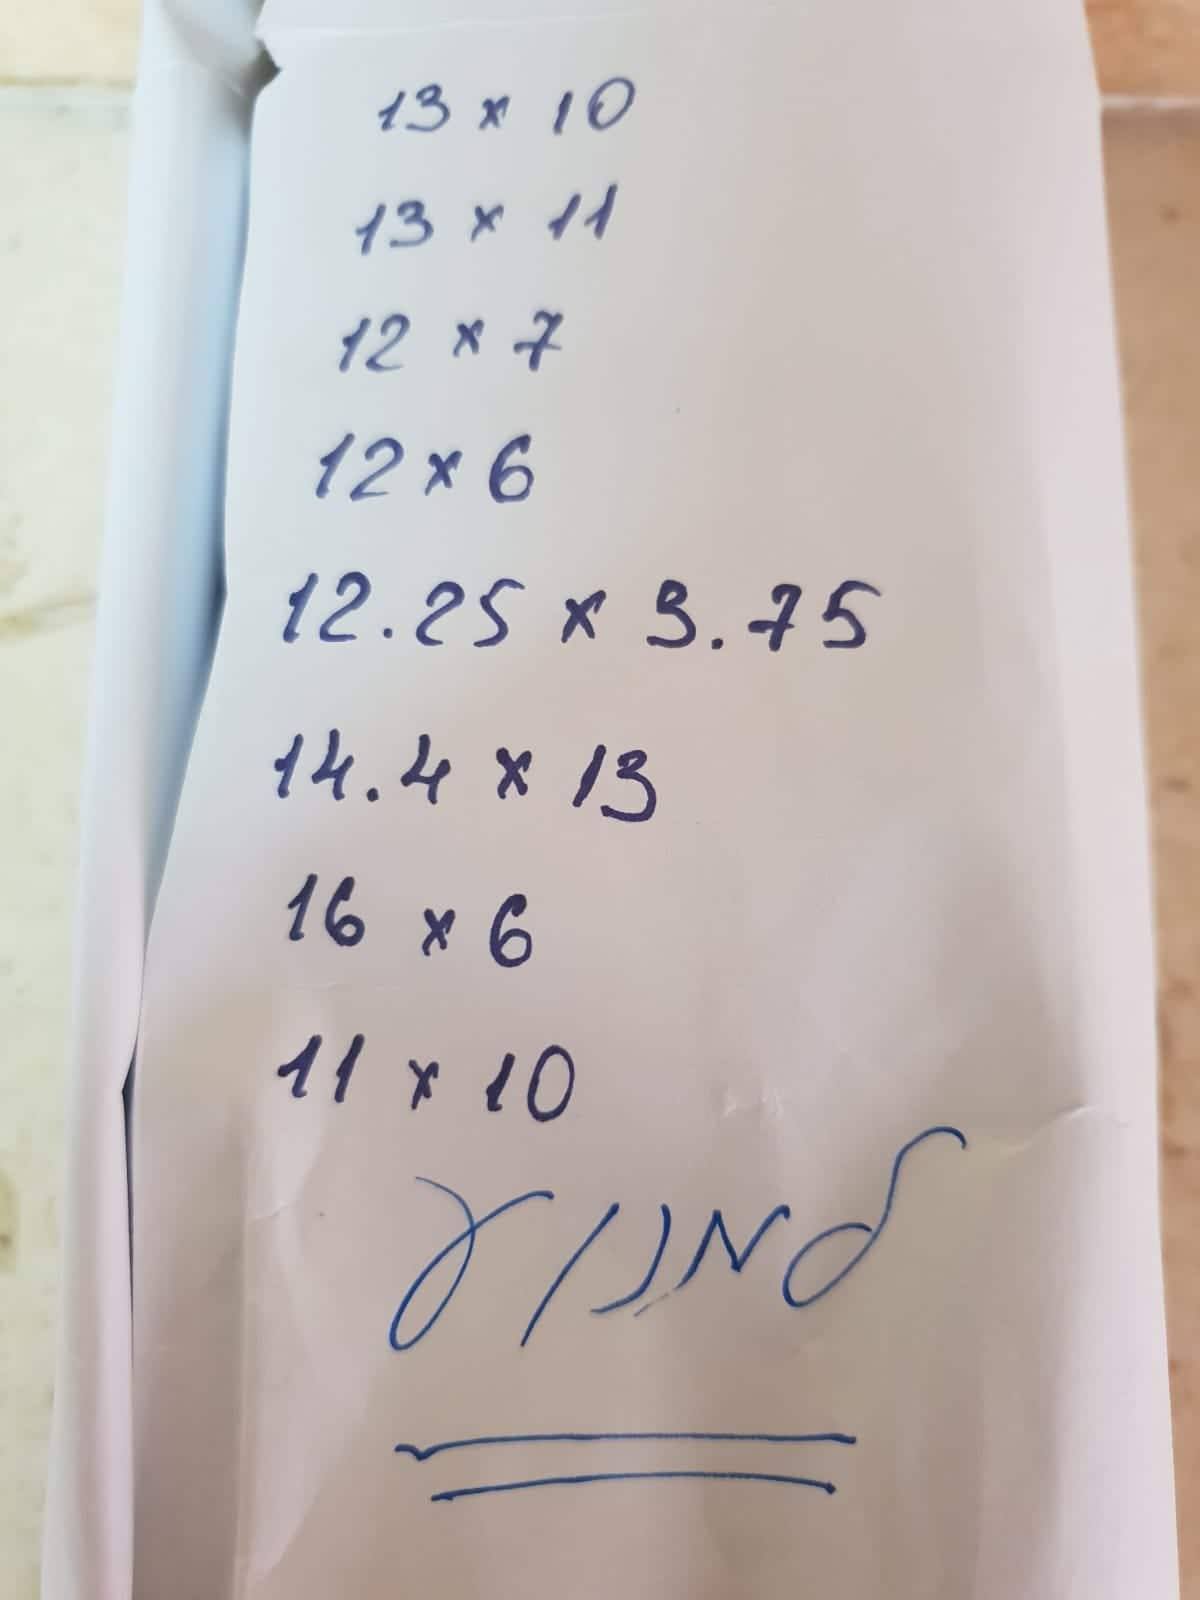 13 x 10
13 x 11
12 x 7
12 x 6
12.25 x 3.75
14.4 x 13
16 x 6
11 x 10
למנוע